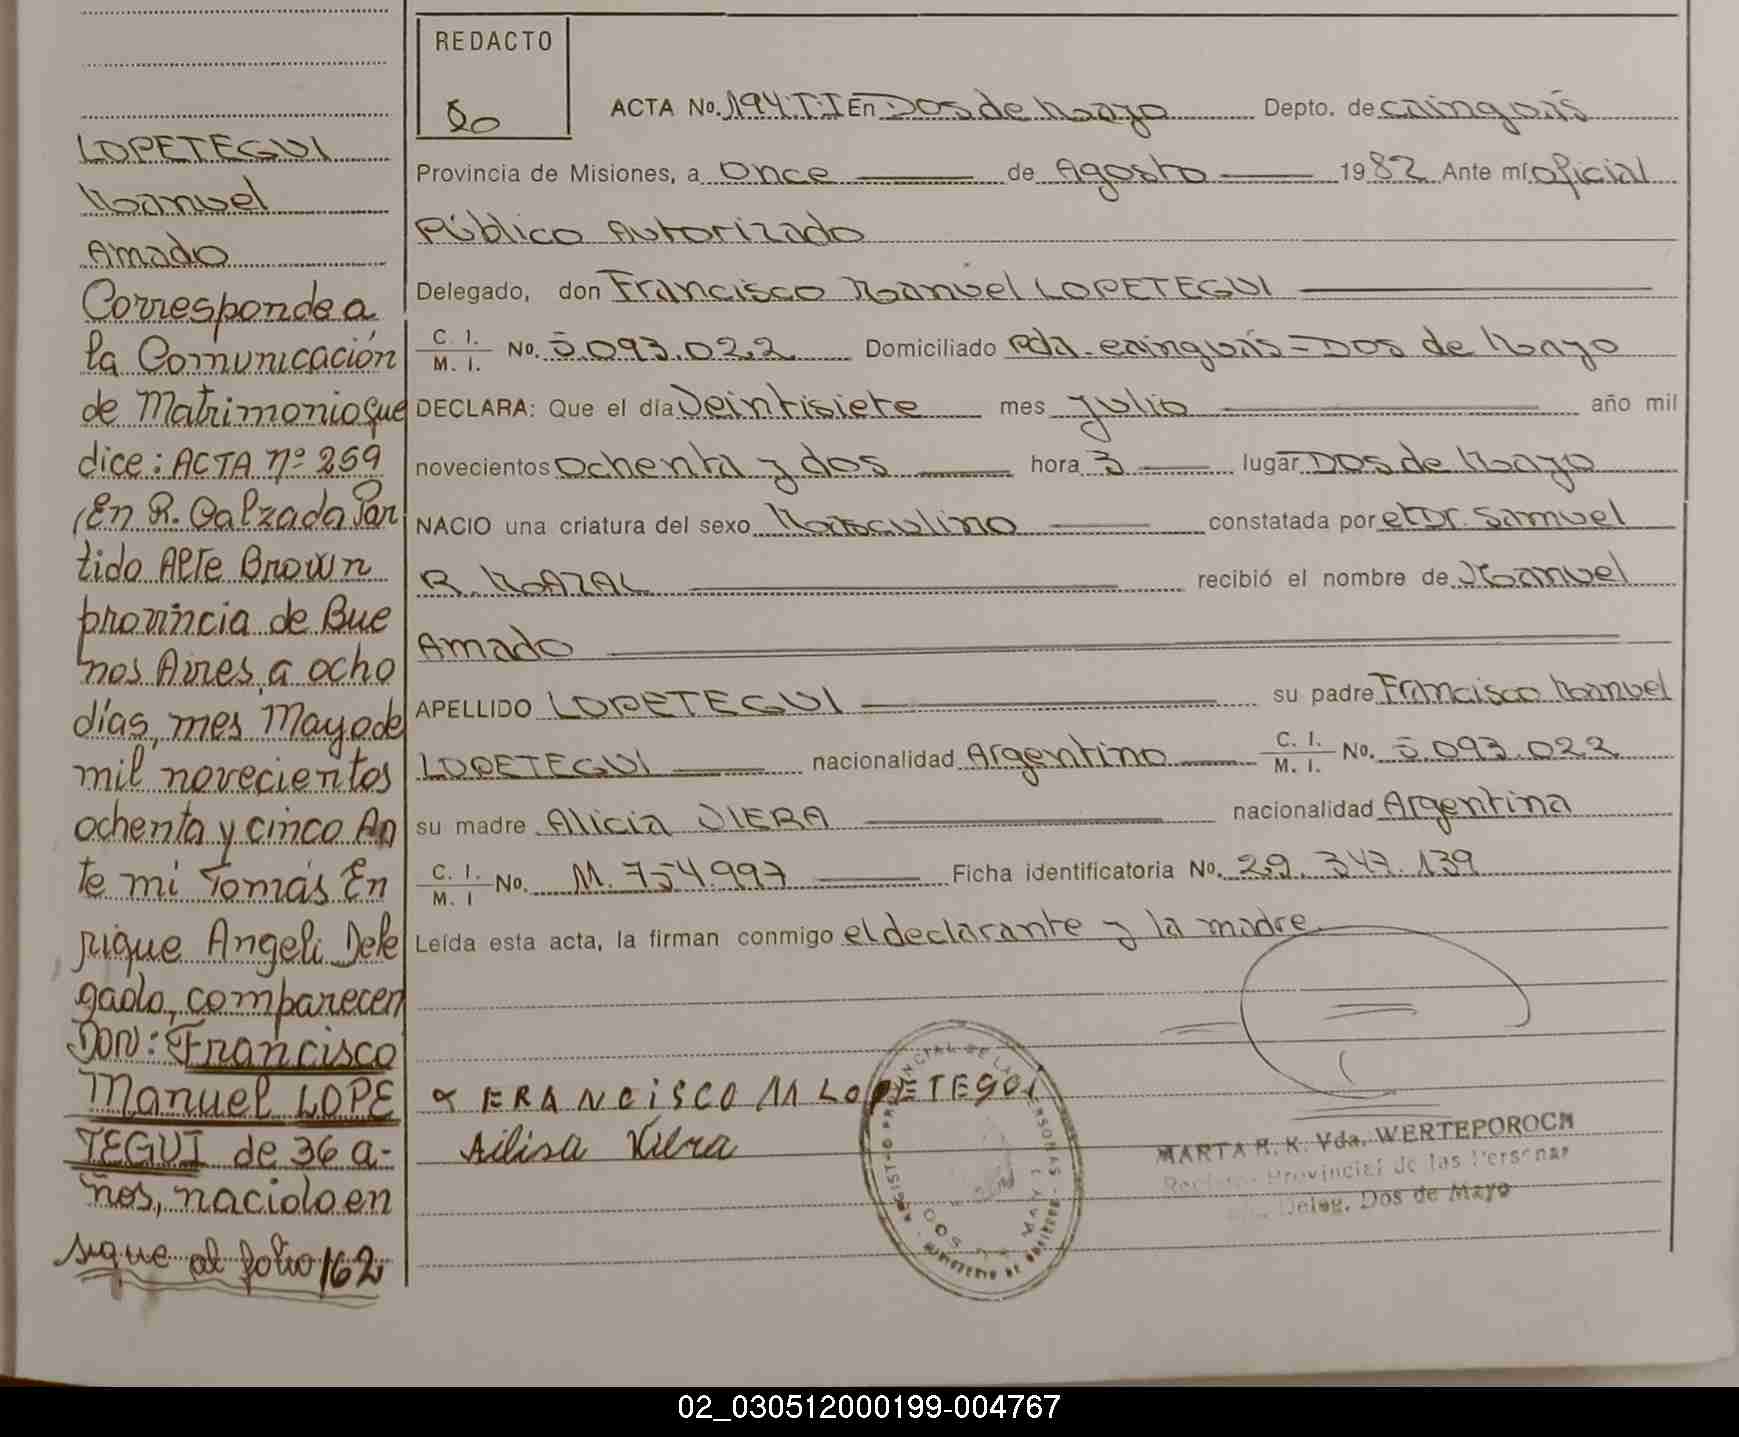 LOPETEGUI
Manuel
Amado
Corresponde a
la Comunicación
de Matrimonio que
dice: ACTA nº 259
En R. Calzada Par
tido Alte Brown
provincia de Bue
nos Aires, a ocho
días, mes Mayo de
mil novecientos
ochenta y cinco An
te mi Tomás En
rique Angeli Dele
gado, comparecen
DON: Francisco
Manuel LOPE
TEGUI de 36 a-
ños, nacido en
sigue al folio 162
REDACTO
ACTA No. 194 T.I En Dos de Mayo Depto. de cainguás
Provincia de Misiones, a Once de Agosto 1982 Ante mí oficial
Público Autorizado
Delegado, don Francisco Manuel LOPETEGUI
C. I.
M. I. No. 5.093.022 Domiciliado Pda. cainguás = Dos de Mayo
DECLARA: Que el día Veintisiete mes Julio año mil
novecientos ochenta y dos hora 3 lugar Dos de Mayo
NACIO una criatura del sexo Masculino constatada por el Dr. Samuel
R. MAZAL recibió el nombre de Manuel
Amado
APELLIDO LOPETEGUI su padre Francisco Manuel
LOPETEGUI nacionalidad Argentino C. I.
M. I. No. 5.093.022
su madre Alicia VIERA nacionalidad Argentina
C. I.
M. I No. M. 754.997 Ficha identificatoria No. 29.347.139
Leída esta acta, la firman conmigo el declarante y la madre
FRANCISCO M LOPETEGUI
Ailisa Viera
MARTA R. K. Vda. WERTEPOROCH
Registro Provincial de las Personas
Deleg. Dos de Mayo
02_030512000199-004767